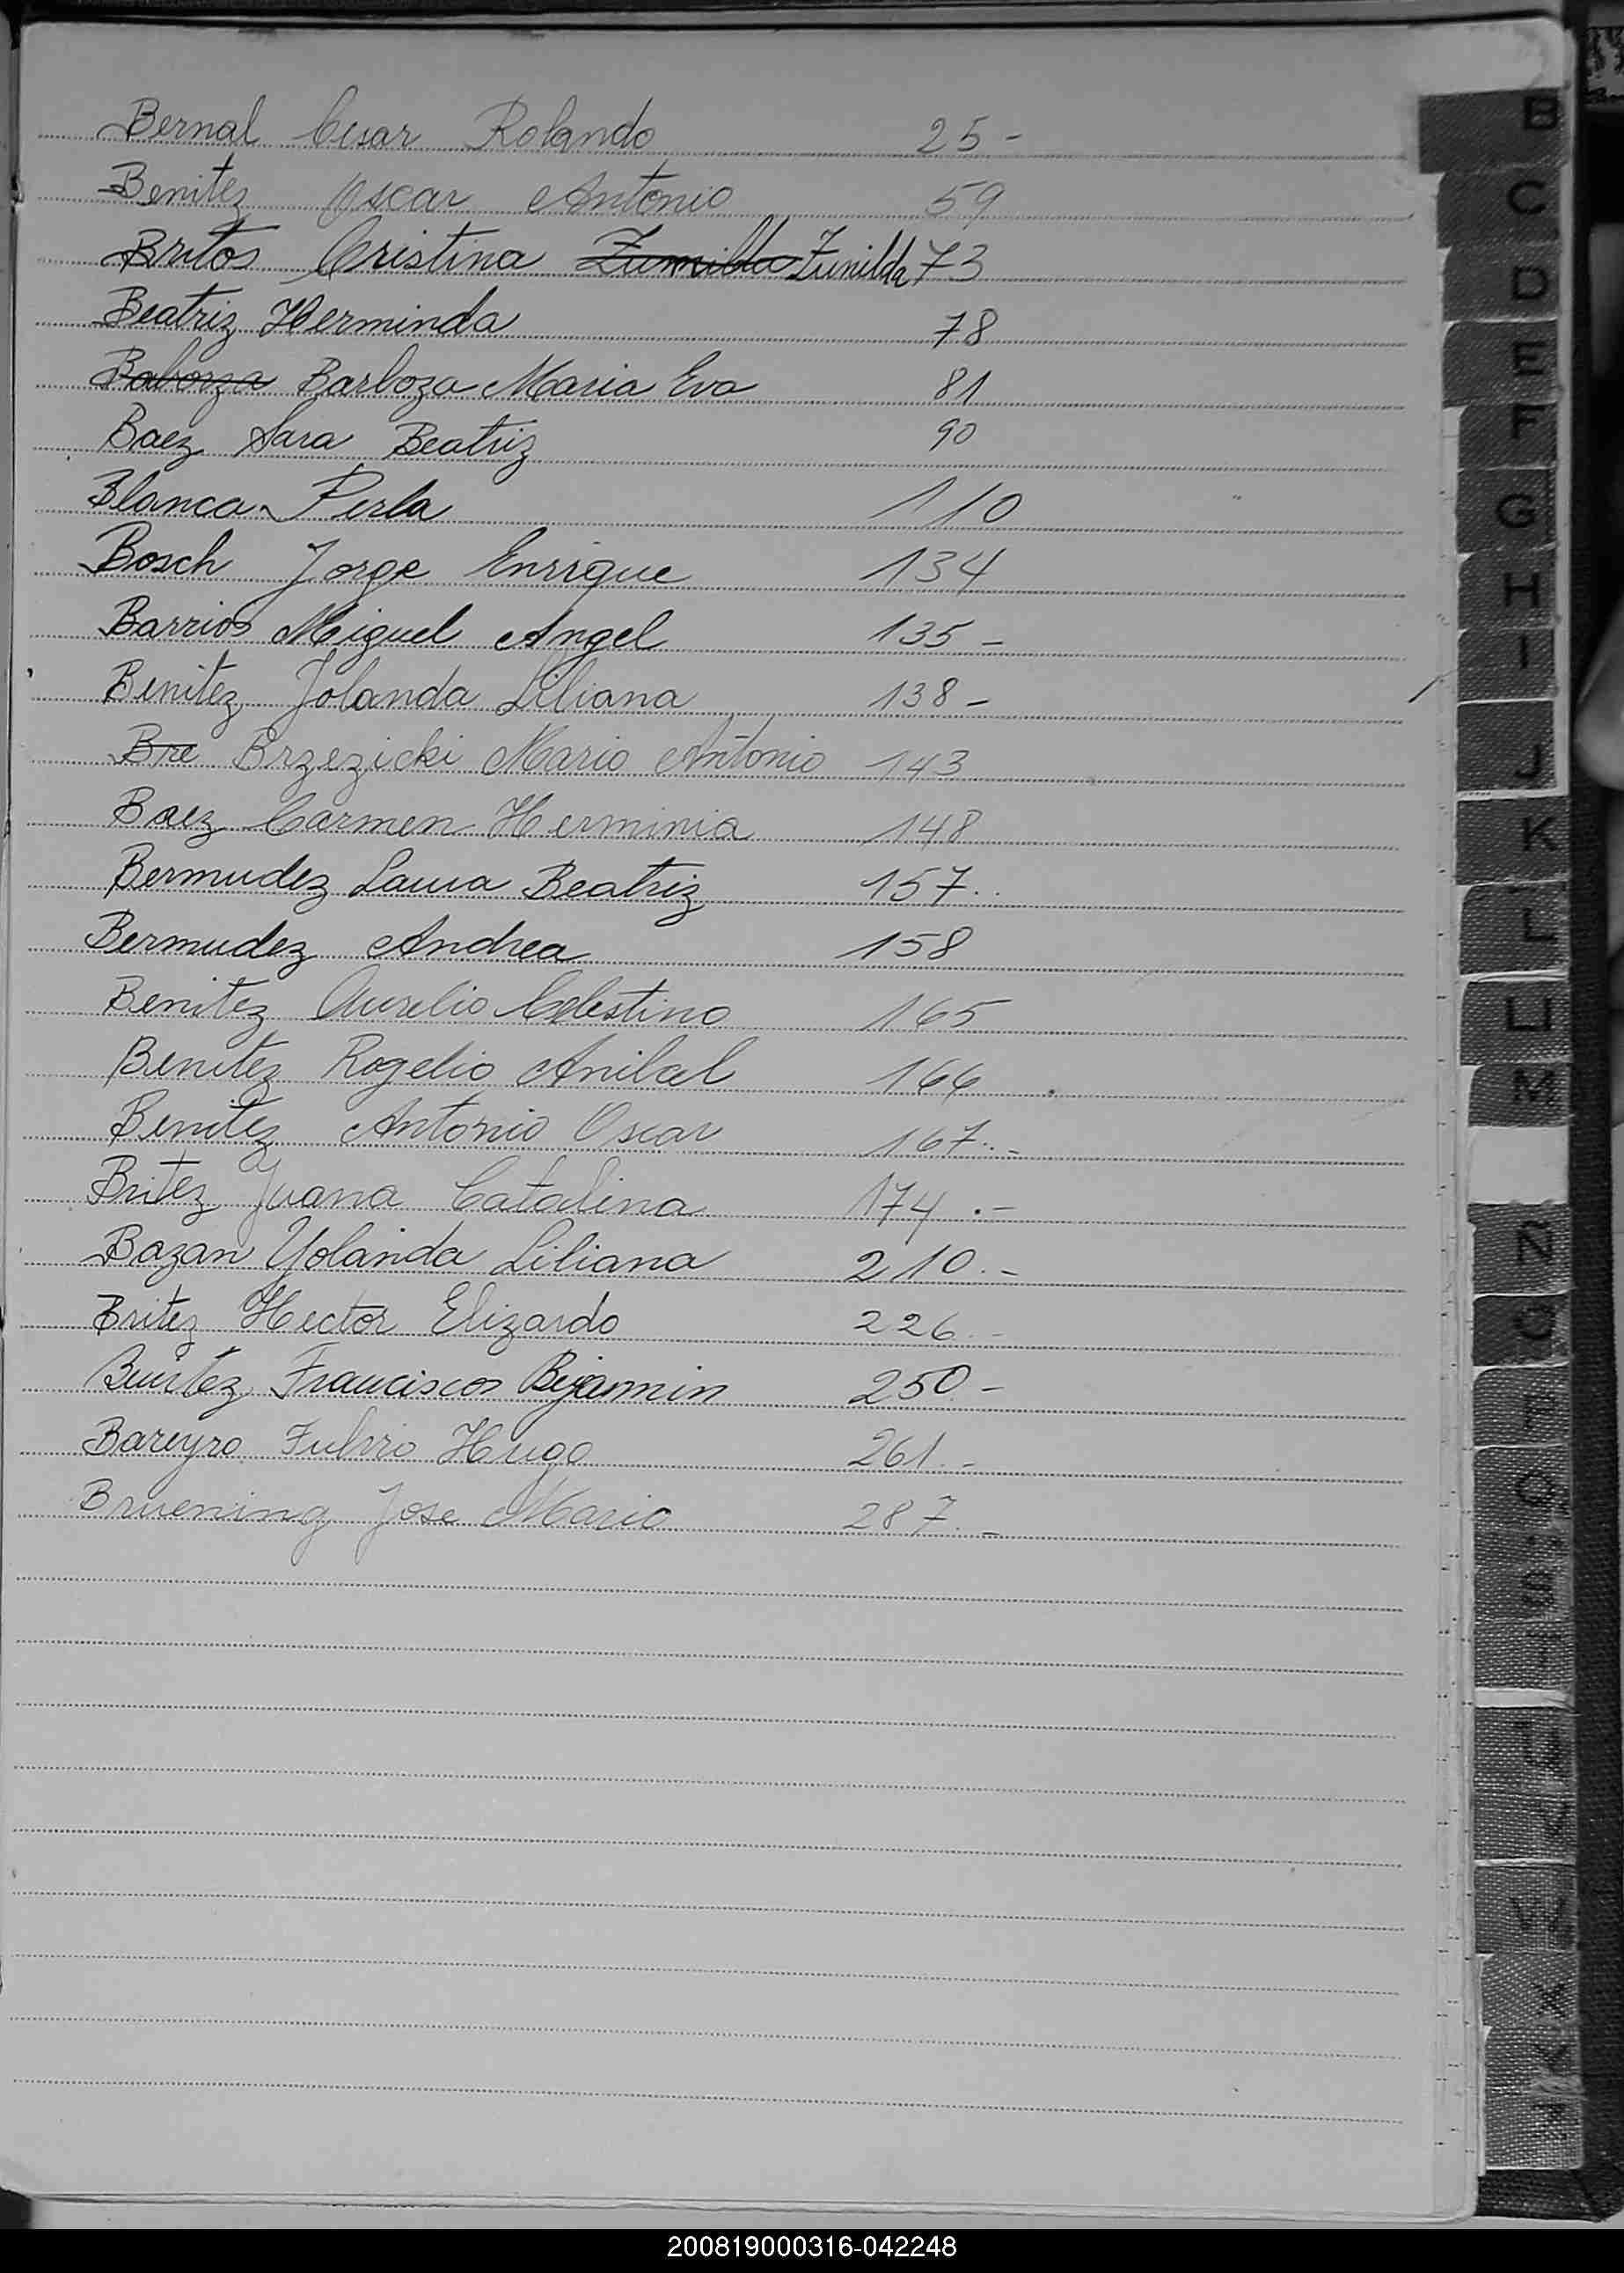 Bernal Cesar Rolando 25-
Benitez Oscar Antonio 59
Britos Cristina Zumilda Zunilda 73
Beatriz Herminda 78
Baborza Barboza Maria Eva 81
Baez Sara Beatriz 90
Blanca Perla 110
Bosch Jorge Enrique 134
Barrios Miguel Angel 135-
Benitez Jolanda Liliana 138-
Bre Brzezicki Mario Antonio 143
Baez Carmen Herminia 148
Bermudez Laura Beatriz 157..
Bermudez Andrea 158
Benitez Aurelio Celestino 165
Benitez Rogelio Anibal 166
Benitez Antonio Oscar 167.-
Britez Juana Catalina 174.-
Bazan Yolanda Liliana 210.-
Britez Hector Elizardo 226.-
Benitez Francisco Bejamin 250.-
Bareyro Fulvio Hugo 261.-
Bruening Jose Mario 287.-
B
C
D
E
F
G
H
I
J
K
L
LL
M
N
O
Q
S
T
U
V
W
X
Y
200819000316-042248